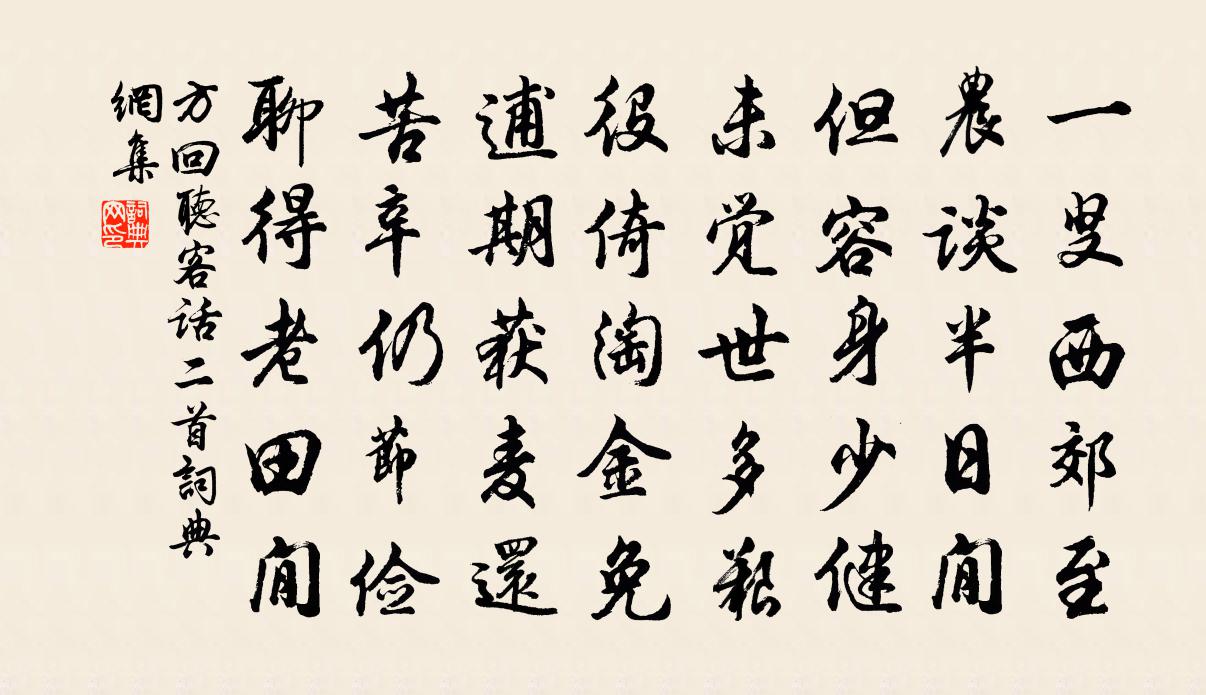 一叟西郊至
農談半日閒
但容身少健
未觉世多艱
役倚淘金免
逋期获麦還
苦辛仍節俭
聊得老田閒
方回聽客话二首詞典
網集
詞典
网印